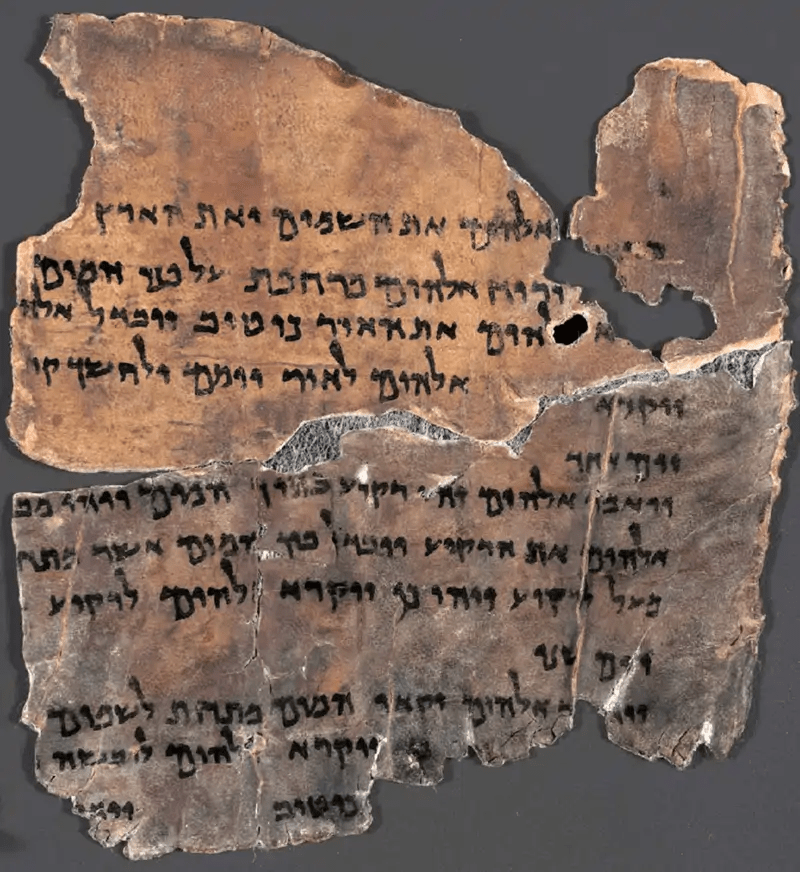 אלהים את השמים ואת הארץ
ורוח אלהים מרחפת על פני המים
להים את האור כי טוב ויבדל אלה
ויקרא אלהים לאור יומם ולחשך קר
יום אחד
ויאמר אלהים יהי רקיע בתוך המים ויהי מב
אלהים את הרקיע ויבדל בין המים אשר מתח
מעל לרקיע ויהי כן ויקרא אלהים לרקיע
יום שני
אלהים המים מתחת לשמים
כן ויקרא אלהים ליבשה
כי טוב